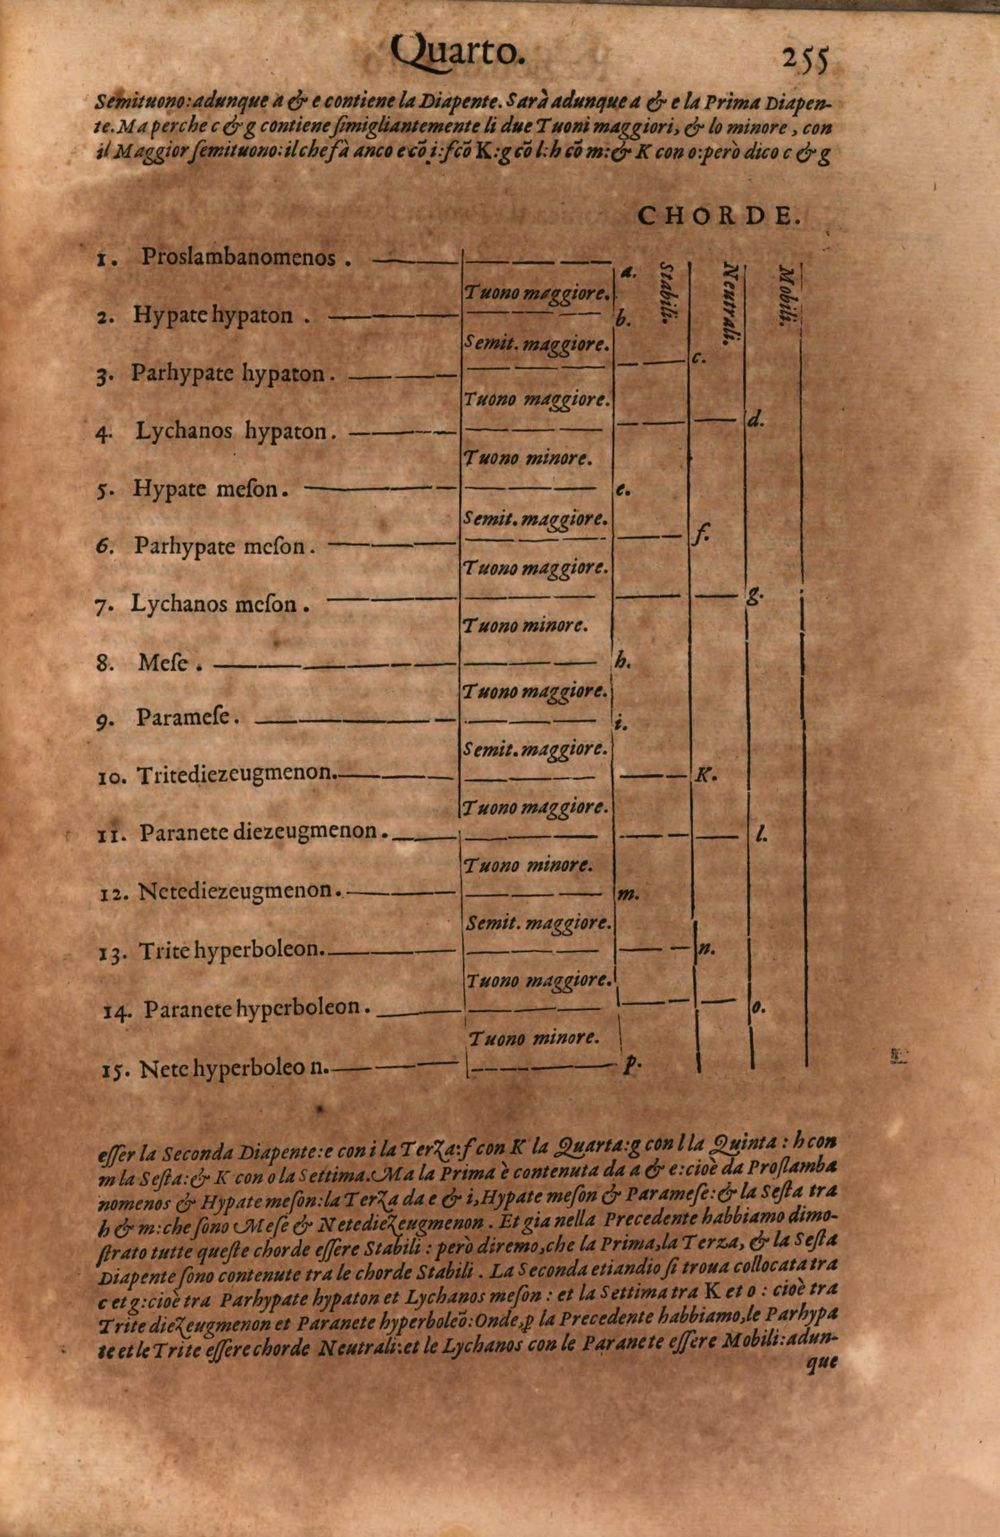 Quarto. 255
Semituono: adunque a & e contiene la Diapente. Sarà adunque a & e la Prima Diapen-
te. Ma perche c & g contiene ſimigliantemente li due Tuoni maggiori, & lo minore, con
il Maggior ſemituono: il che fà anco e cō i: f cō K: g cō l: h cō m: & K con o: però dico c & g
CHORDE.
Stabili. Neutrali. Mobili.
1. Proslambanomenos.
a.
Tuono maggiore.
2. Hypate hypaton.
b.
Semit. maggiore.
3. Parhypate hypaton.
c.
Tuono maggiore.
4. Lychanos hypaton.
d.
Tuono minore.
5. Hypate meſon.
e.
Semit. maggiore.
6. Parhypate meſon.
f.
Tuono maggiore.
7. Lychanos meſon.
g.
Tuono minore.
8. Meſe.
h.
Tuono maggiore.
9. Parameſe.
i.
Semit. maggiore.
10. Tritediezeugmenon.
K.
Tuono maggiore.
11. Paranete diezeugmenon.
l.
Tuono minore.
12. Netediezeugmenon.
m.
Semit. maggiore.
13. Trite hyperboleon.
n.
Tuono maggiore.
14. Paranete hyperboleon.
o.
Tuono minore.
15. Nete hyperboleo n.
p.
eſſer la Seconda Diapente: e con i la Terza: f con K la Quarta: g con l la Quinta: h con
m la Seſta: & K con o la Settima. Ma la Prima è contenuta da a & e: cioè da Proſlamba
nomenos & Hypate meſon: la Terza da e & i, Hypate meſon & Parameſe: & la Seſta tra
h & m: che ſono Meſe & Netediezeugmenon. Et gia nella Precedente habbiamo dimo-
ſtrato tutte queſte chorde eſſere Stabili: però diremo, che la Prima, la Terza, & la Seſta
Diapente ſono contenute tra le chorde Stabili. La Seconda etiandio ſi troua collocata tra
c et g: cioè tra Parhypate hypaton et Lychanos meſon: et la Settima tra K et o: cioè tra
Trite diezeugmenon et Paranete hyperboleō: Onde, ꝑ la Precedente habbiamo, le Parhypa
te et le Trite eſſere chorde Neutrali: et le Lychanos con le Paranete eſſere Mobili: adun-
que